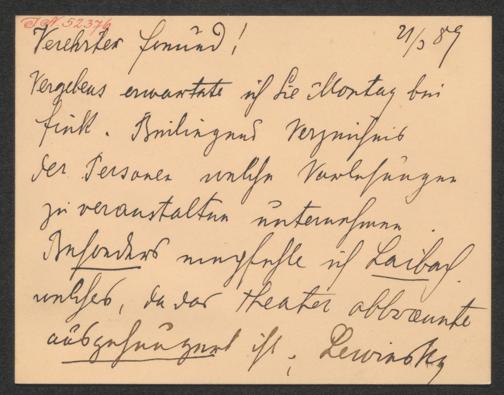 J.N. 52376
Verehrter Freund! 21/3 89
Vergebens erwartete ich Sie Montag bei
Fink. Beiliegend Verzeichnis
der Personen welche Vorlesungen
zu veranstalten unternehmen.
Besonders empfehle ich Laibach
welches, da das Theater abbrannte
ausgehungert ist. Lewinsky